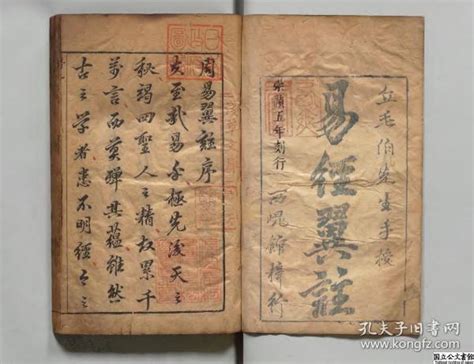 丘毛伯先生手授
易經翼註
崇禎五年刻行
梓行
周易翼註序
大至哉易乎極先後天之
秘竭四聖人之精权累千
萬言而莫殫其蘊雖然
古之學者患不明經今之
孔夫子旧书网
www.kongfz.com
国立公文書館